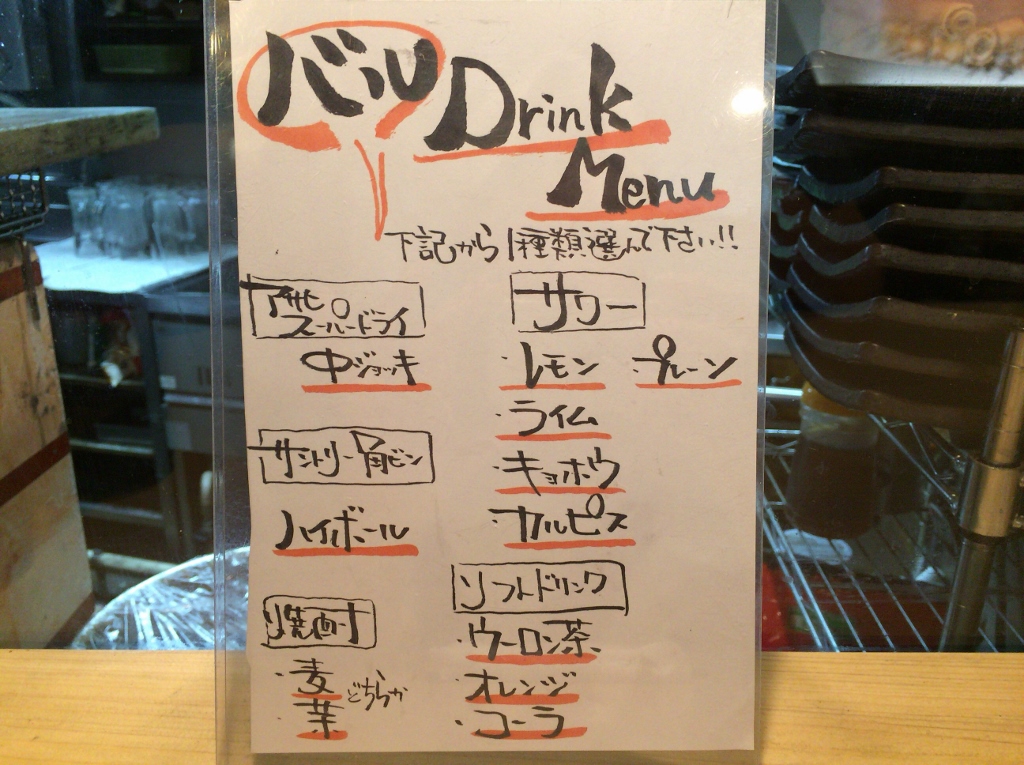 バル Drink
Menu
下記から1種類選んで下さい!!
アサヒ
スーパードライ
中ジョッキ
サントリー角ビン
ハイボール
焼酎
・麦
・芋
どちらか
サワー
・レモン ・プレーン
・ライム
・キョホウ
・カルピス
ソフトドリンク
・ウーロン茶
・オレンジ
・コーラ